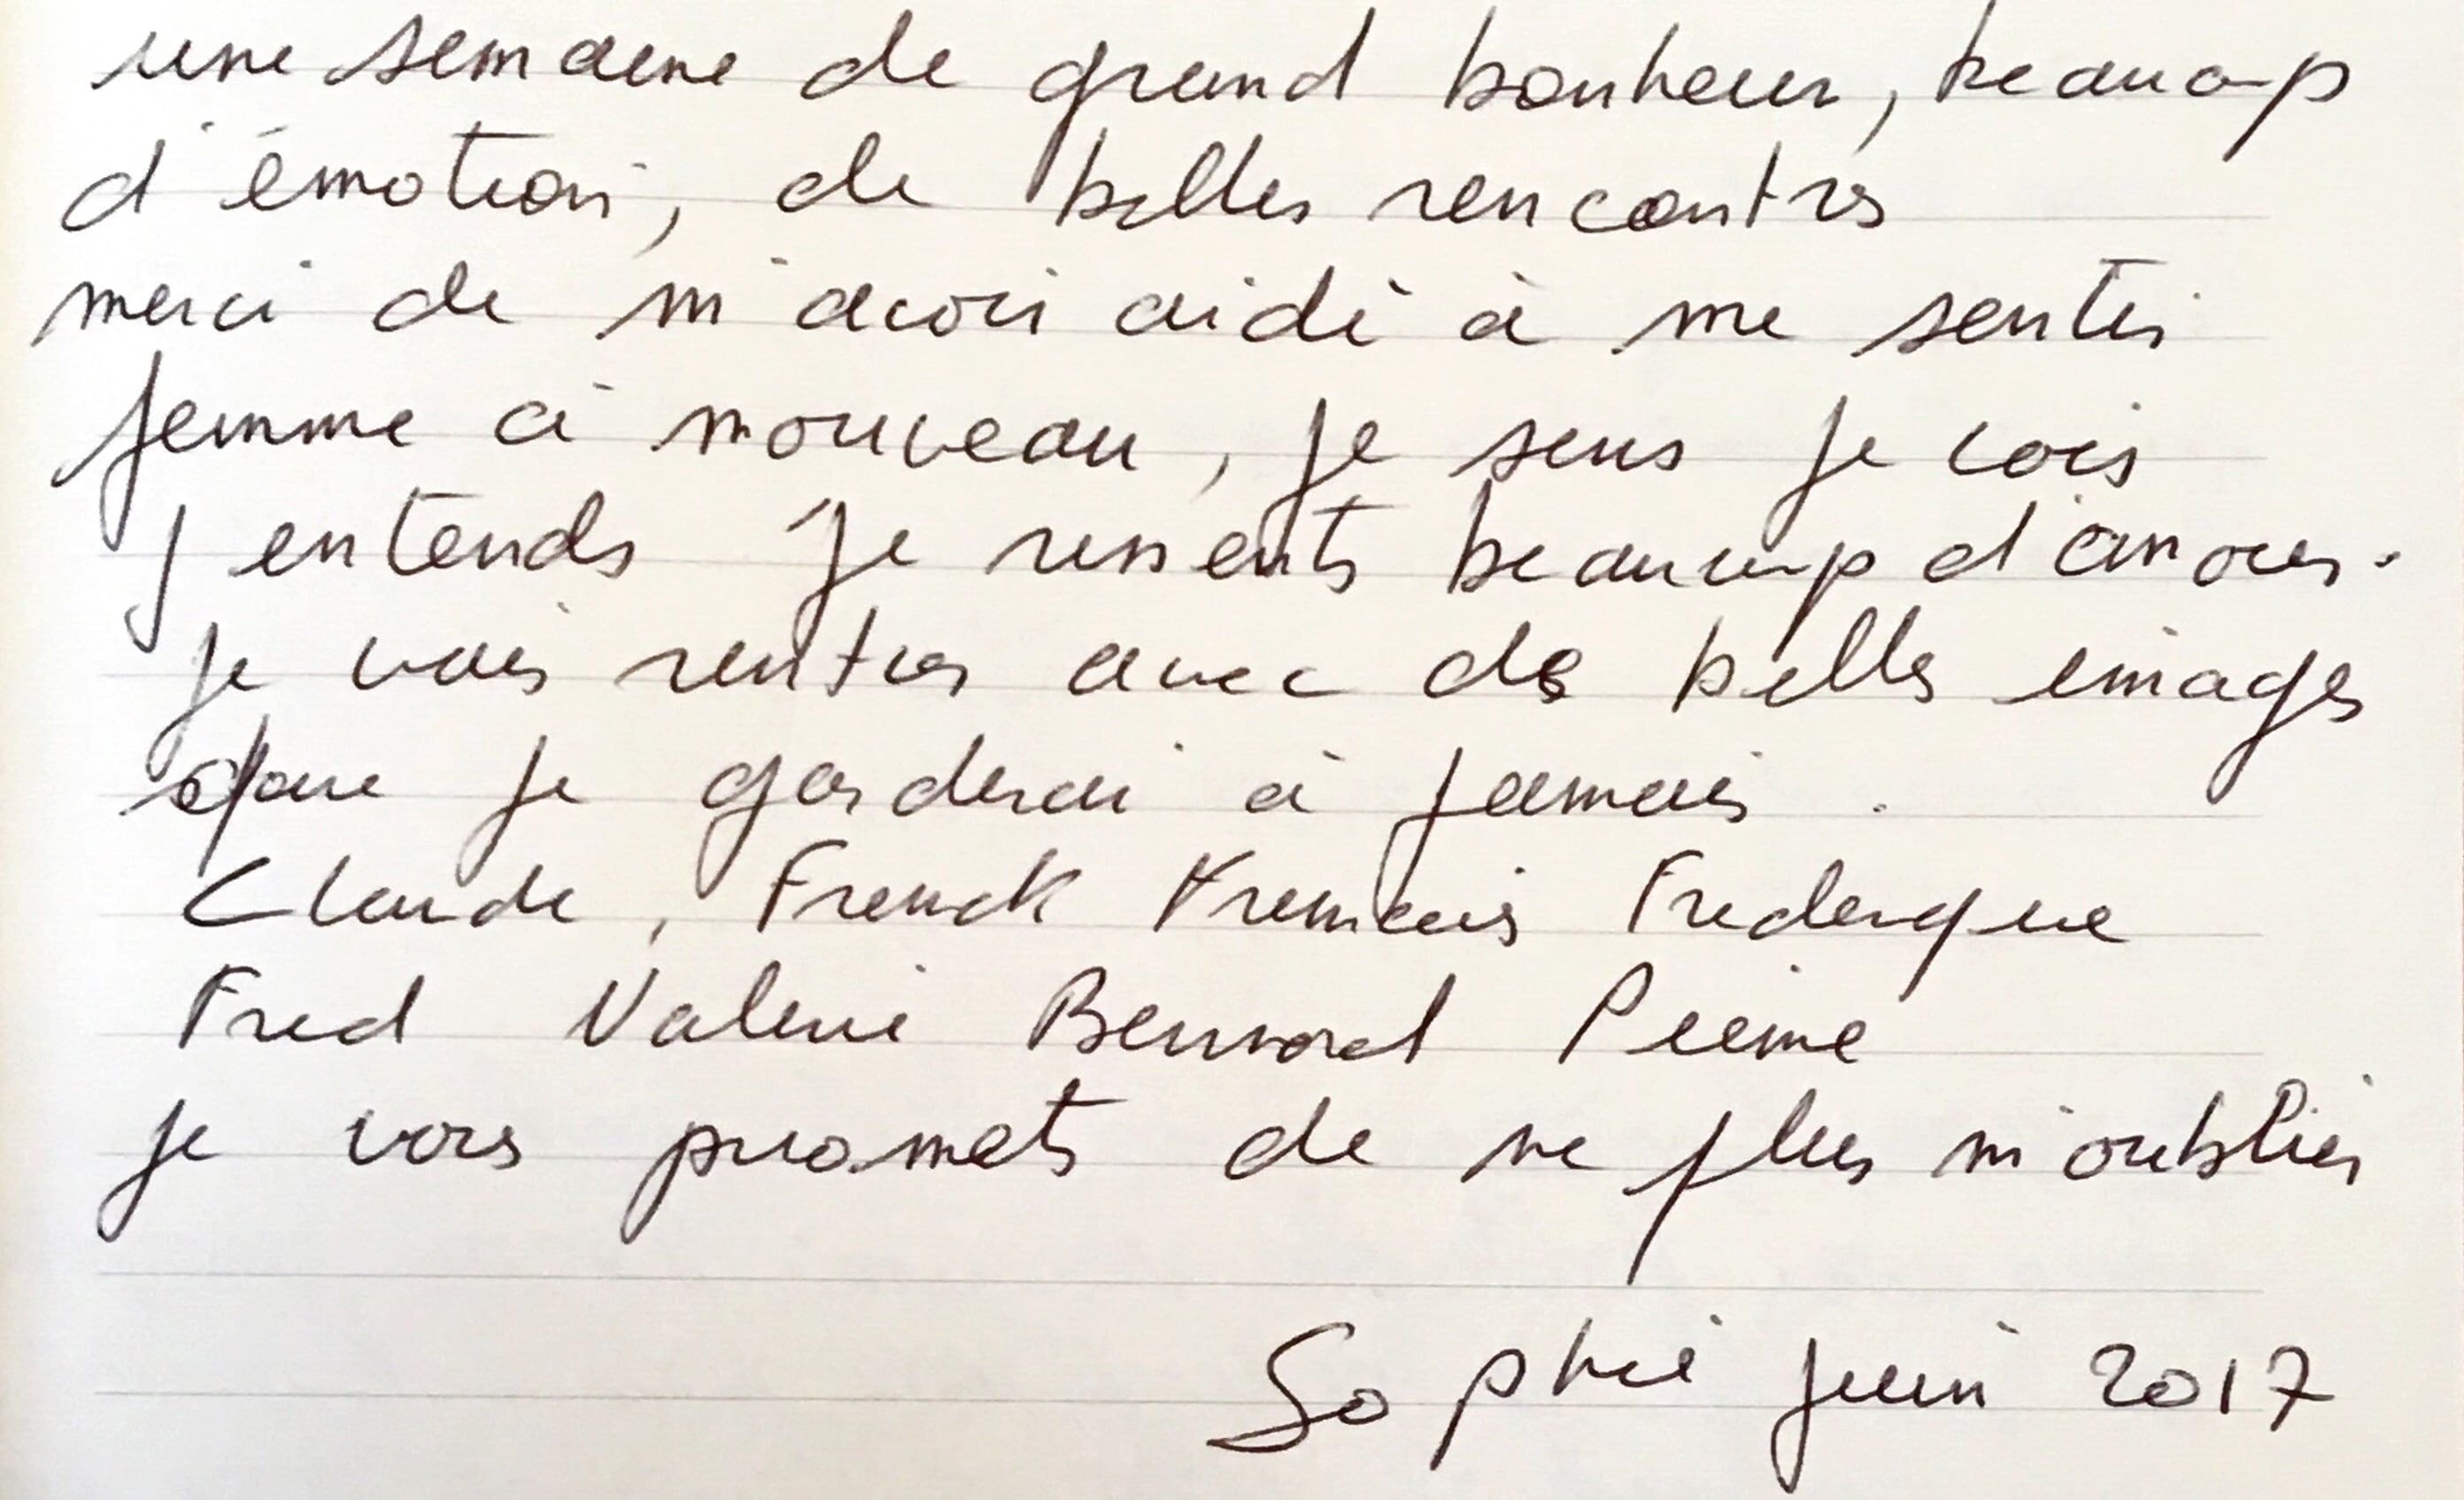 une semaine de grand bonheur, beaucoup
d'émotion, de belles rencontres
merci de m'avoir aidé à me sentir
femme à nouveau, je sens je vois
j entends je ressents beaucoup d'amour.
je vais rentrer avec des belles images
que je garderai à jamais.
Claude, Franck Francois Frederique
Fred Valerie Bernard Pierre
je vous promets de ne plus m'oublier
Sophie juin 2017